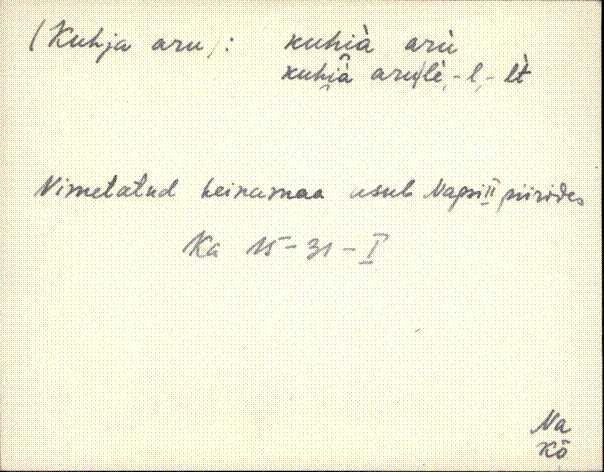 (Kuhja aru): kuhià arù
kuhi̯à aru|lè, -l, -lt
Nimetatud heinamaa asub Napsi II piirides
Ka 15-31-I
Na
Kö